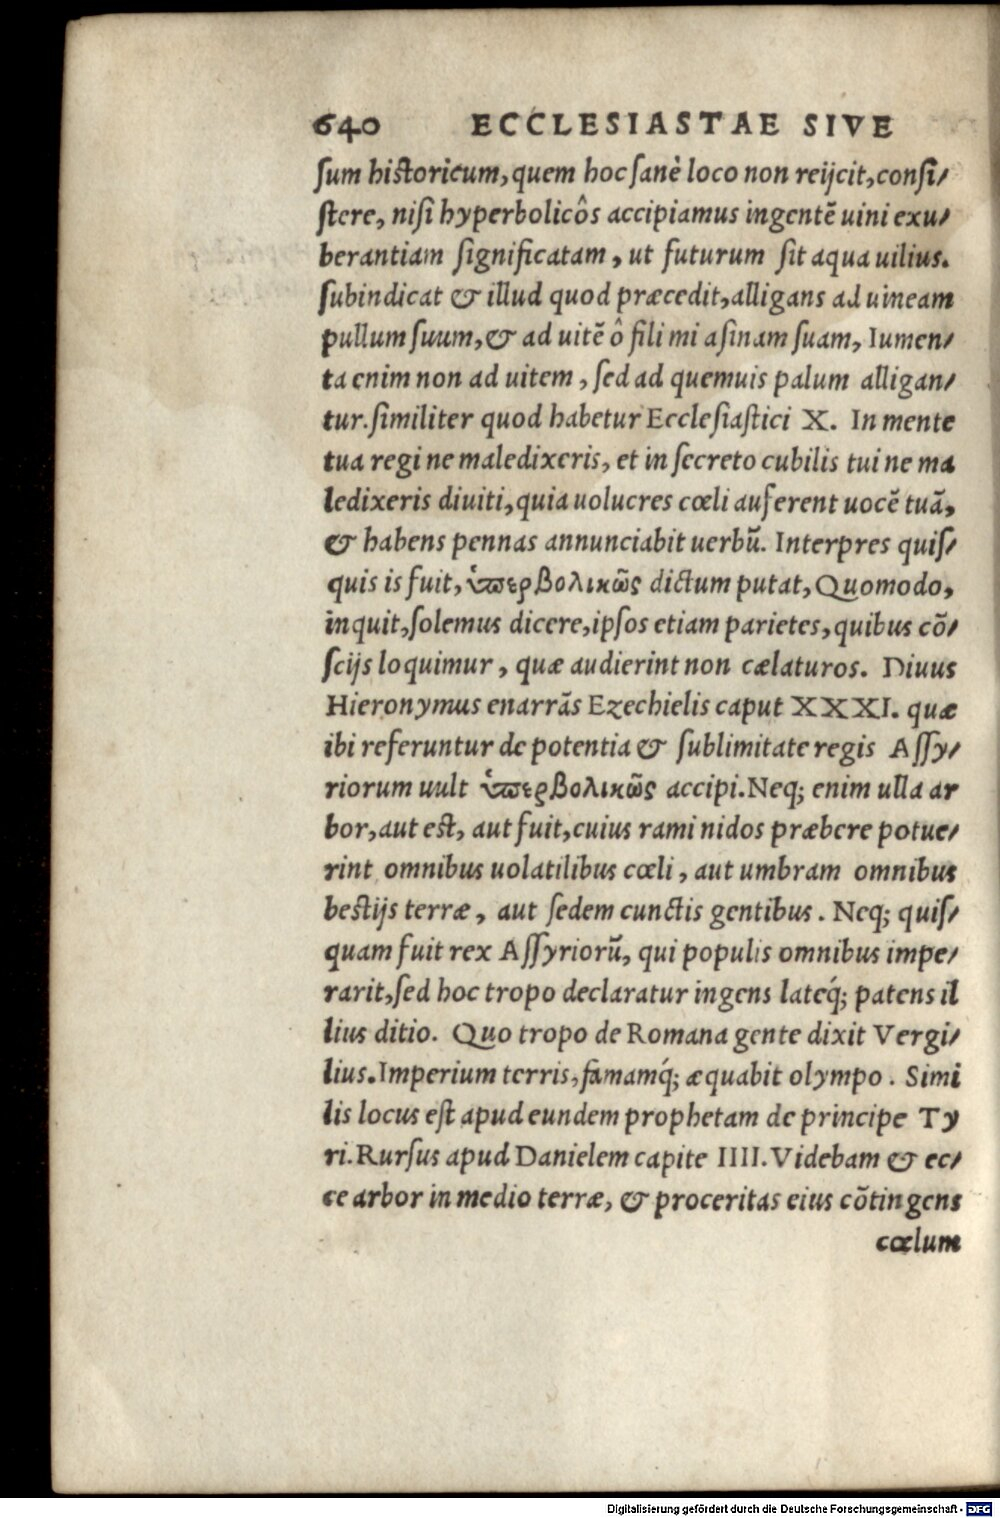 640 ECCLESIASTAE SIVE
ſum hiſtoricum, quem hoc ſanè loco non reijcit, conſi/
ſtere, niſi hyperbolicôs accipiamus ingentẽ uini exu/
berantiam ſignificatam, ut futurum ſit aqua uilius.
ſubindicat & illud quod præcedit, alligans ad uineam
pullum ſuum, & ad uitẽ ô fili mi aſinam ſuam, Iumen/
ta enim non ad uitem, ſed ad quemuis palum alligan/
tur. ſimiliter quod habetur Eccleſiaſtici X. In mente
tua regi ne maledixeris, et in ſecreto cubilis tui ne ma
ledixeris diuiti, quia uolucres cœli auferent uocẽ tuã,
& habens pennas annunciabit uerbũ. Interpres quiſ/
quis is fuit, ὑπερβολικῶς dictum putat, Quomodo,
inquit, ſolemus dicere, ipſos etiam parietes, quibus cõ/
ſcijs loquimur, quæ audierint non cælaturos. Diuus
Hieronymus enarrãs Ezechielis caput XXXI. quæ
ibi referuntur de potentia & ſublimitate regis Aſſy/
riorum uult ὑπερβολικῶς accipi. Neq; enim ulla ar
bor, aut eſt, aut fuit, cuius rami nidos præbere potue/
rint omnibus uolatilibus cœli, aut umbram omnibus
beſtijs terræ, aut ſedem cunctis gentibus. Neq; quiſ/
quam fuit rex Aſſyriorũ, qui populis omnibus impe/
rarit, ſed hoc tropo declaratur ingens lateq́; patens il
lius ditio. Quo tropo de Romana gente dixit Vergi/
lius. Imperium terris, famamq́; æquabit olympo. Simi
lis locus eſt apud eundem prophetam de principe Ty
ri. Rurſus apud Danielem capite IIII. Videbam & ec/
ce arbor in medio terræ, & proceritas eius cõtingens
cœlum
Digitalisierung gefördert durch die Deutsche Forschungsgemeinschaft - DFG